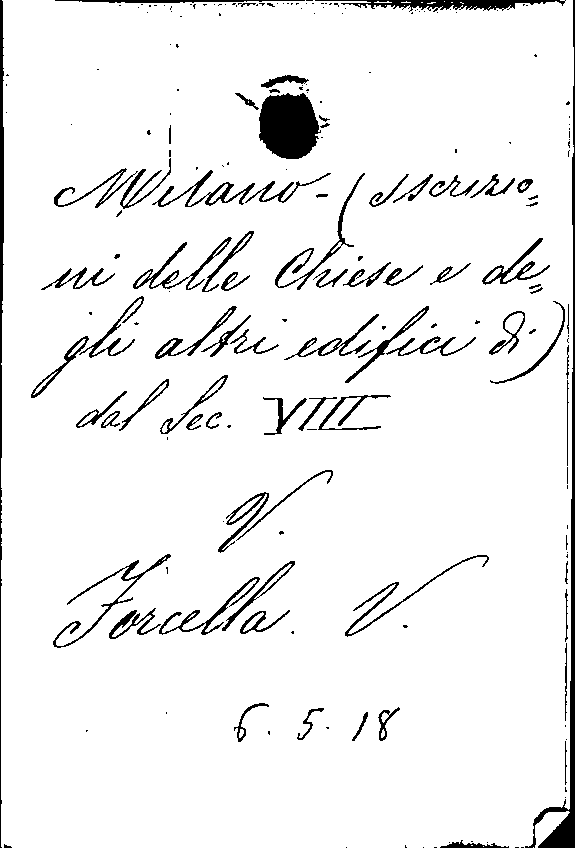 Milano - (Iscrizio=
ni delle Chiese e de=
gli altri edifici di)
dal Sec. VIII
V.
Forcella. V.
6. 5. 18